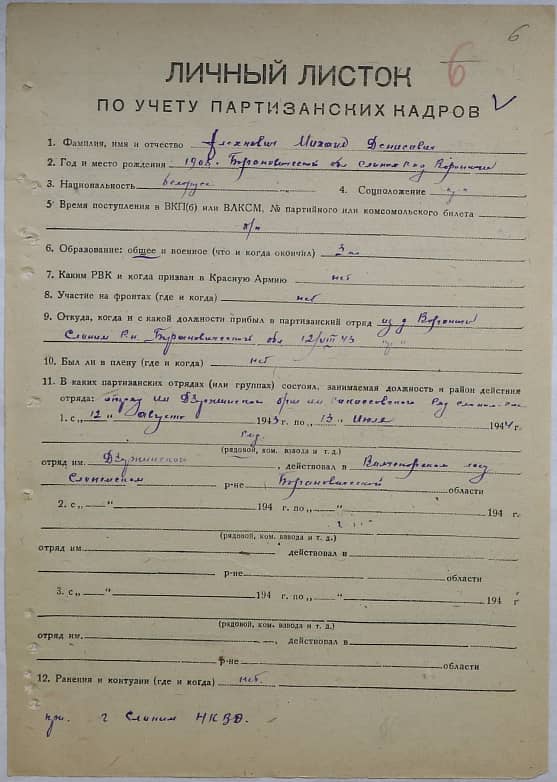 6
6
ЛИЧНЫЙ ЛИСТОК
ПО УЧЕТУ ПАРТИЗАНСКИХ КАДРОВ
1. Фамилия, имя и отчество Алехнович Михаил Денисович
2. Год и место рождения 1908 Барановической обл
3. Национальность белорус 4. Соцположение
5. Время поступления в ВКП(б) или ВЛКСМ, № партийного или комсомольского билета
б/п
6. Образование: общее и военное (что и когда окончил) 3 кл
7. Каким РВК и когда призван в Красную Армию нет
8. Участие на фронтах (где и когда) нет
9. Откуда, когда и с какой должности прибыл в партизанский отряд из д
Слоним Р-н Барановической обл 12/VIII 43
10. Был ли в плену (где и когда) нет
11. В каких партизанских отрядах (или группах) состоял, занимаемая должность и район действия
отряда: отряд им Дзержинского
1. с „12“ августа 1943 г. по „13“ Июля 1944 г.
Ряд.
(рядовой, ком. взвода и т. д.)
отряд им. Дзержинского, действовал в
Слонимском р-не Барановической области
2. с „ “ 194 г. по „ “ 194 г.
(рядовой, ком. взвода и т. д.)
отряд им. действовал в
р-не области
3. с „ “ 194 г. по „ “ 194 г
(рядовой, ком. взвода и т. д.)
отряд им. , действовал в
р-не области
12. Ранения и контузии (где и когда) нет.
г Слоним НКВД.